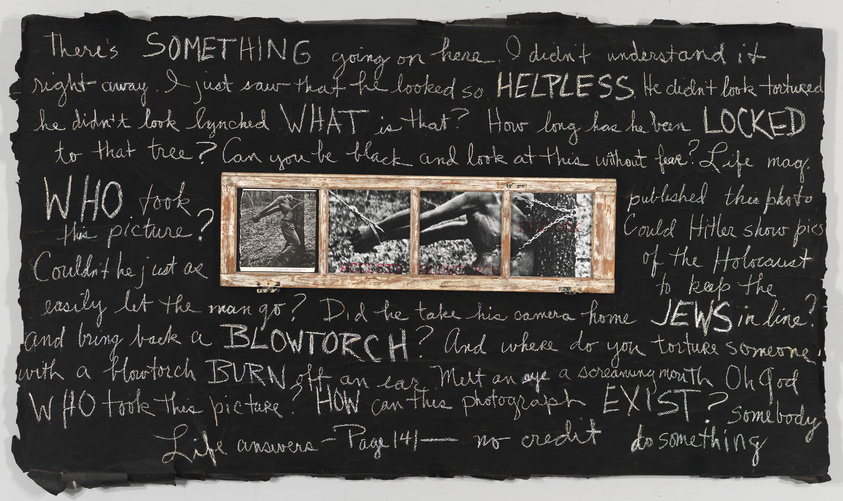 There's SOMETHING going on here. I didn't understand it
right away. I just saw that he looked so HELPLESS He didn't look tortured
he didn't look lynched. WHAT is that? How long has he been LOCKED
to that tree? Can you be black and look at this without fear? Life mag.
WHO took published this photo
this picture? Could Hitler show pics
Couldn't he just as of the Holocaust
to keep the
easily let the man go? Did he take his camera home JEWS in line?
and bring back a BLOWTORCH? And where do you torture someone
with a blowtorch BURN off an ear Melt an eye a screaming mouth Oh God
WHO took this picture? HOW can this photograph EXIST? Somebody
Life answers – Page 141 — no credit do something